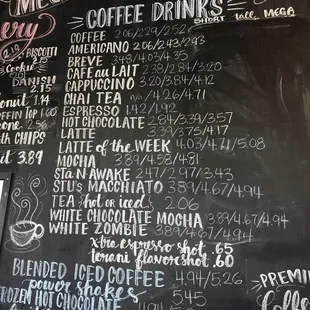 COFFEE DRINKS
SHORT tall MEGA
COFFEE 2.06/2.29/2.52
AMERICANO 2.06/2.43/2.93
BREVE 3.43/4.03/4.35
CAFÉ au LAIT 2.38/2.84/3.20
CAPPUCCINO 3.20/3.84/4.12
CHAI TEA n/a/4.26/4.71
ESPRESSO 1.42/1.92
HOT CHOCOLATE 2.84/3.39/3.57
LATTE 3.39/3.75/4.17
LATTE of the WEEK 4.03/4.71/5.08
MOCHA 3.89/4.58/4.81
Sta N AWAKE 2.47/2.97/3.43
STU'S MACCHIATO 3.89/4.67/4.94
TEA (hot or iced) 2.06
WHITE CHOCOLATE MOCHA 3.89/4.67/4.94
WHITE ZOMBIE 3.89/4.67/4.94
x-tra espresso shot .65
torani flavor shot .60
BLENDED ICED COFFEE 4.94/5.26
power shakes
FROZEN HOT CHOCOLATE 5.45
BISCOTTI
Cookie
DANISH
2.15
1.44
1.60
2.56
CHIPS
3.89
PREMI
Coffe